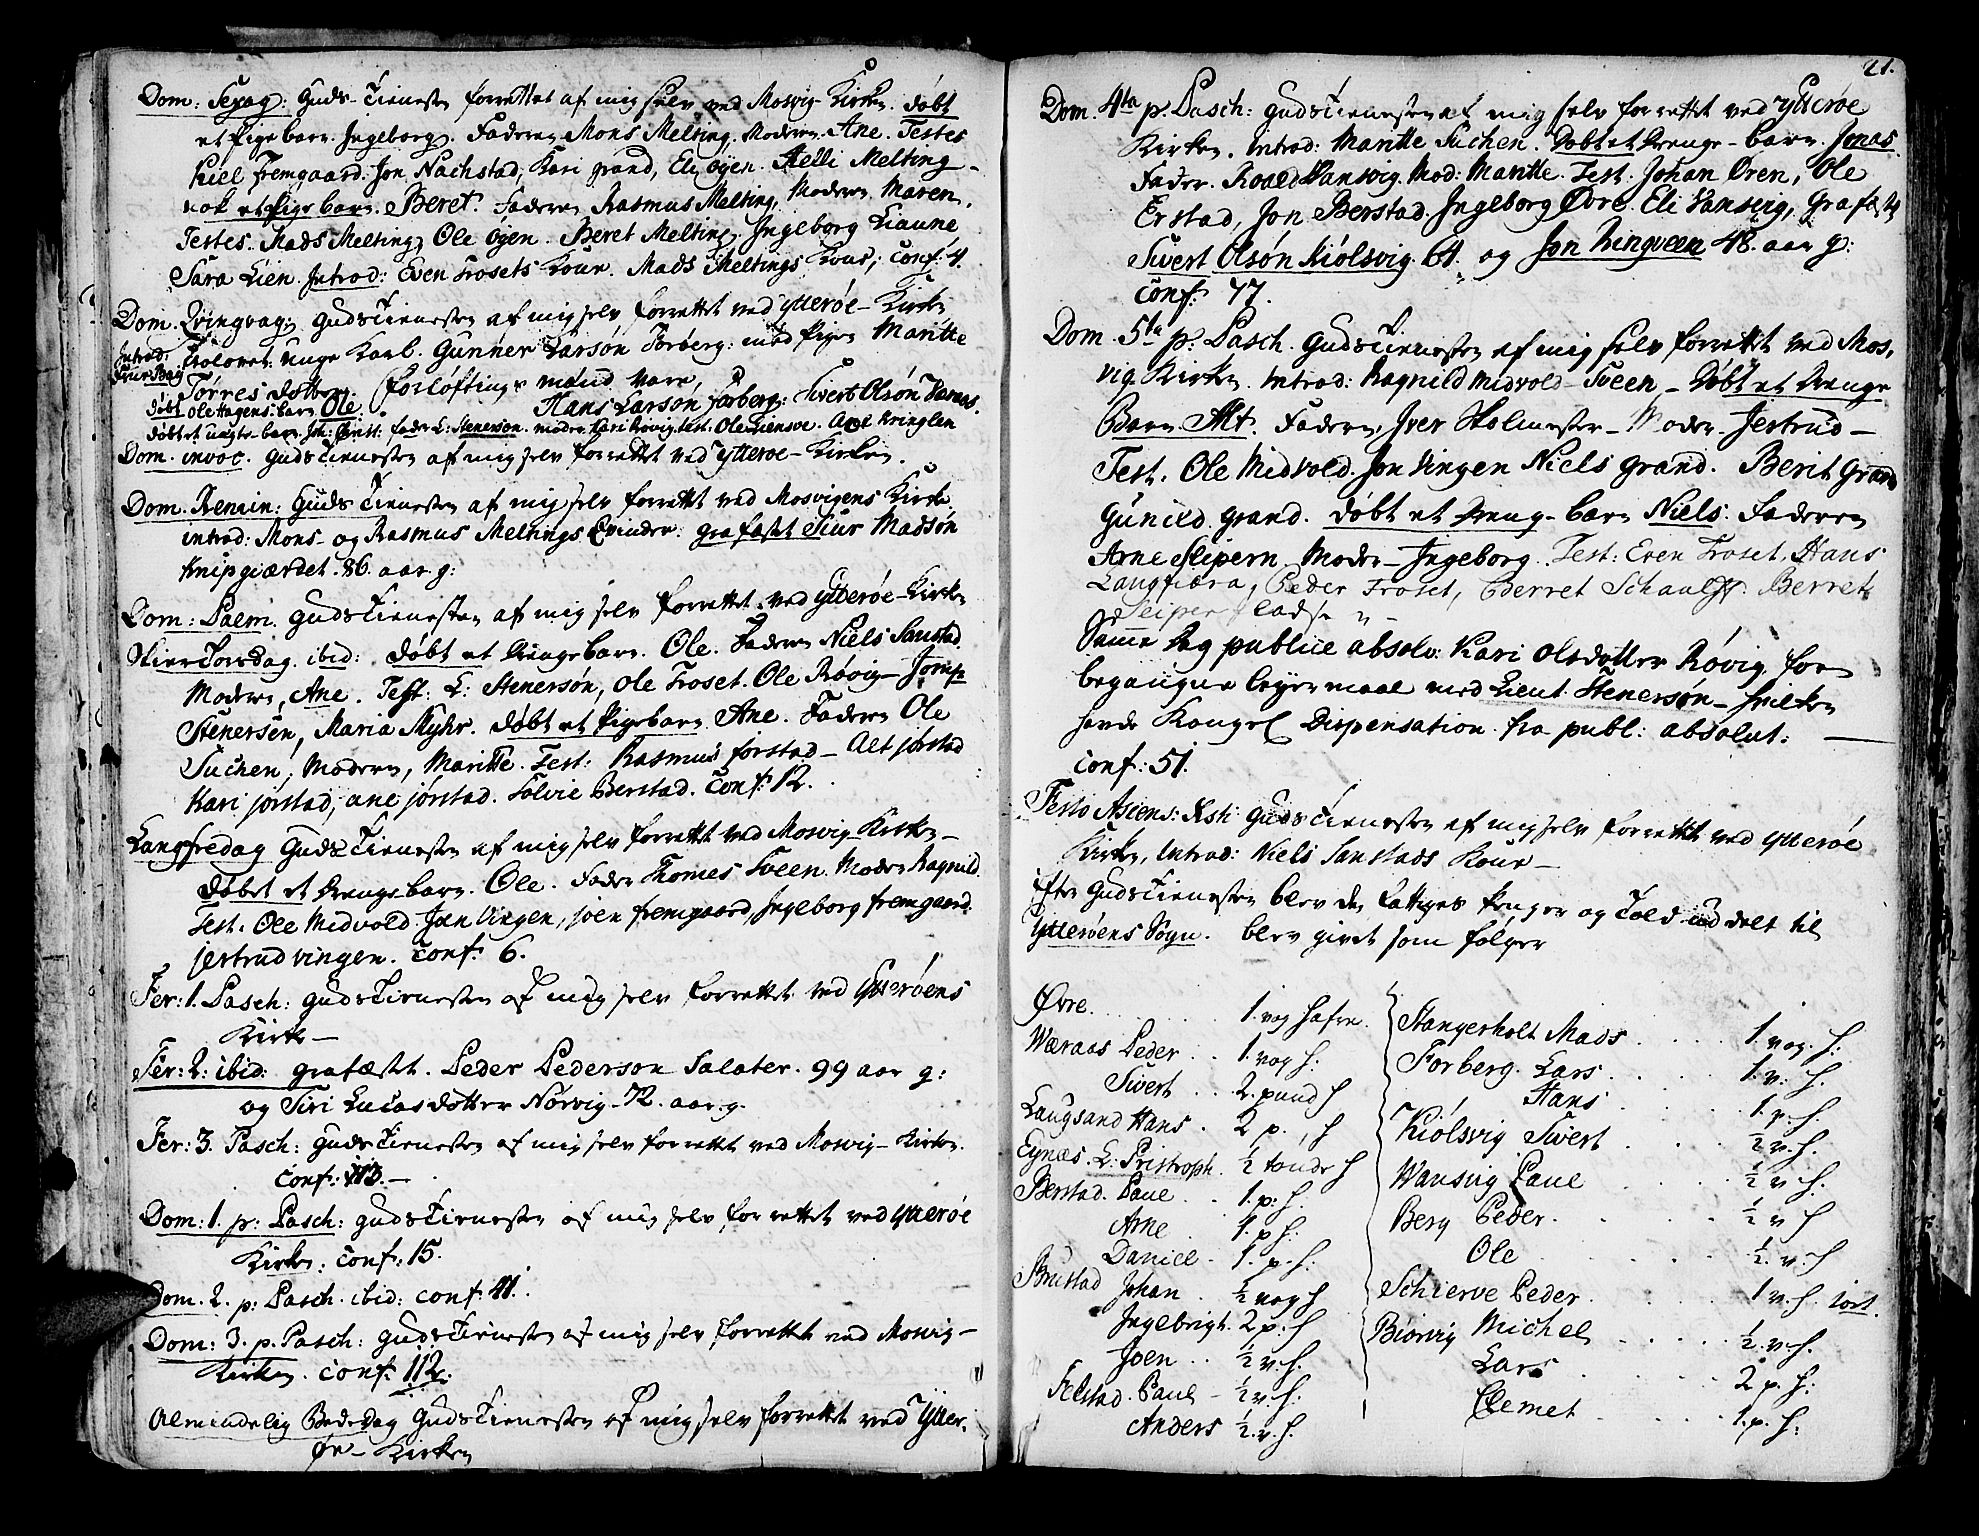 Dom: Sexag: Guds-Tienesten forrettet af mig selv ved Mosvig-Kirke. døbt
et Pige barn. Ingeborg. Faderen Mons Melting, Moderen. Ane. Testes
Kiel Fremgaard. Jon Nachstad, Kari grand, Eli Øyen. Melting
nok et Pige barn. Beret. Faderen Rasmus Melting, Moderen Maren.
Testes. Mads Melting, Ole Øyen. Beret Melting, Ingeborg Liaune
Sara Lien. Introd: Even Trosets Kone. Mads Meltings Kone, Conf: 4.
Dom. Qvinqvag: Gudstienesten af mig selv forrettet ved Ytterøe-Kirke
Introd:
Trolovet unge Karl. Gunner Larsøn Forberg: med Pigen Maritte
Torres dotter. forløftings mænd vare,
Hans Larson forberg: Sivert Olsøn
døbt Ole Hagens barn Ole.
døbt et uægte-barn fader L: Stenersøn. moder Kari Røvig. test. Ole
Dom. invoc. Gudstienesten af mig selv forrettet ved Ytterøe-Kirken.
Dom. Remin: Guds Tienesten af mig selv forrettet ved Mosvigens Kirke
introd: Mons- og Rasmus Meltings Qvinder. grafæstet Siur Madsøn
Knipgiærdet. 86. aar. g:
Dom: Laem. Gudstienesten af mig selv forrettet ved Ytterøe-Kirke
Skiertorsdag. ibid: døbt et Drengebarn. Ole. Faderen Niels Sanstad
Moderen, Ane. Test: L: Stenersøn, Ole Troset. Ole Røvig-
Stenersen, Maria Myhr. døbt et Pigebarn Ane. Faderen Ole
Suchen, Moderen, Maritte. Test: Rasmus jørstad- Alt jørstad
Kari jørstad, ane jørstad. Solvie Berstad. Conf: 12.
Langfredag Guds Tienesten af mig selv forrettet ved Mosvig-Kirken-
døbet et Drengebarn. Ole. Fader Thomes Sveen. Moder Ragnild
Test. Ole Midvold. Joen Vingen, joen fremgaard, Ingeborg fremgaard.
jertrud vingen. Conf: 6.
Fer: 1. Pasch: Gudstienesten af mig selv forrettet ved Ytterøens
Kirk-
Fer: 2: ibid: grafæstet. Peder Pederson Salater. 99 aar g:
og Siri Lucasdotter Norvig-72. aar. g.
Fer: 3. Pasch: Guds Tienesten af mig selv forrettet ved Mosvig-Kirken.
Conf: 113.-
Dom: 1. p: Pasch: Gudstienesten af mig selv forrettet ved Ytterøe
Kirke: conf: 15.
Dom. 2. p: Pasch. ibid: conf 41.
Dom: 3. p. Pasch: Gudstienesten af mig selv forrettet ved Mosvig-
Kirken. conf: 112.
Almindelig Bededag Gudstienesten af mig selv forrettet ved Ytter,
øe-Kirken
21.
Dom. 4ta p. Pasch: Gudstienesten af mig selv forrettet ved Ytterøe
Kirken. introd: Maritte Suchen. Døbt et Drenge-barn. Jonas.
Fader. Roald Vansvig. Mod: Maritte. Test. Johan Øren, Ole
Erstad, Jon Berstad. Ingeborg Øvre. Eli Vansvig, Grafæst
Sivert Olsøn Kiolsvig. 61. og Jon Ringveen 48. aar g:
conf: 77.
Dom. 5ta p: Pasch. Gudstienesten af mig selv forrettet ved Mos,
vig Kirken. introd: Ragnild Midvold-Sveen- Døbt et Drenge
Barn Alt. Faderen, Iver Moder. Jertrud-
Test. Ole Midvold. Jon Vingen Niels Grand. Berit Grand
Gunild. grand. døbt et Dreng-barn Niels. Faderen
Arne Sliper. Moder-Ingeborg. Test: Even Troset. Hans
Langfiæra, Peder Troset, Berret Berret
Samme Dag publice absolv: Kari Olsdotter Røvig for
begangne leyermaal med Lieut. Stenersøn- hvilken
havde Kongel Dispensation fra publ: absolut:
conf: 51.
Festo Asiens: Xsti Gudstienesten af mig selv forrettet ved Ytterøe
Kirken, Introd: Niels Sanstads Kone-
Efter Gudstienesten blev de Fattiges Penger og uddelt til
Ytterøens Sogn. blev givet som følger
Øvre. . . . 1. vog hafre.
Wæraas Peder . . 1. vog h:
Sivert . . 2. pund h
Langsand Hans . 2 p. h
Eynæs. L: ½ tønde h
Berstad. Paul . . 1. p: h.
Arne 1. p h:
Daniel - 1. p. h:
Brustad Johan . ½ vog h
Ingebrigt. 2 p: h
Joen . . ½ v. h.
Felstad. Paul - ½ v. h:
Anders ½. v. h.
Stangerholt Mads . . . . 1. vog. h:
Forberg. Lars . . . . 1. v: h.
Hans . . . . 1. p. h:
Kiolsvig Sivert . . . . ½ v. h:
Wansvig Paul . . . . ½ v h:
Berg Peder. . . . . ½ v h
Ole . . . . ½. v. h
Schierve Peder. . . . 1 v. h.
Biorvig Michel . . . . ½. v. h.
Lars . . . . 2 p. h:
Clemet . . . . 1. p. h: